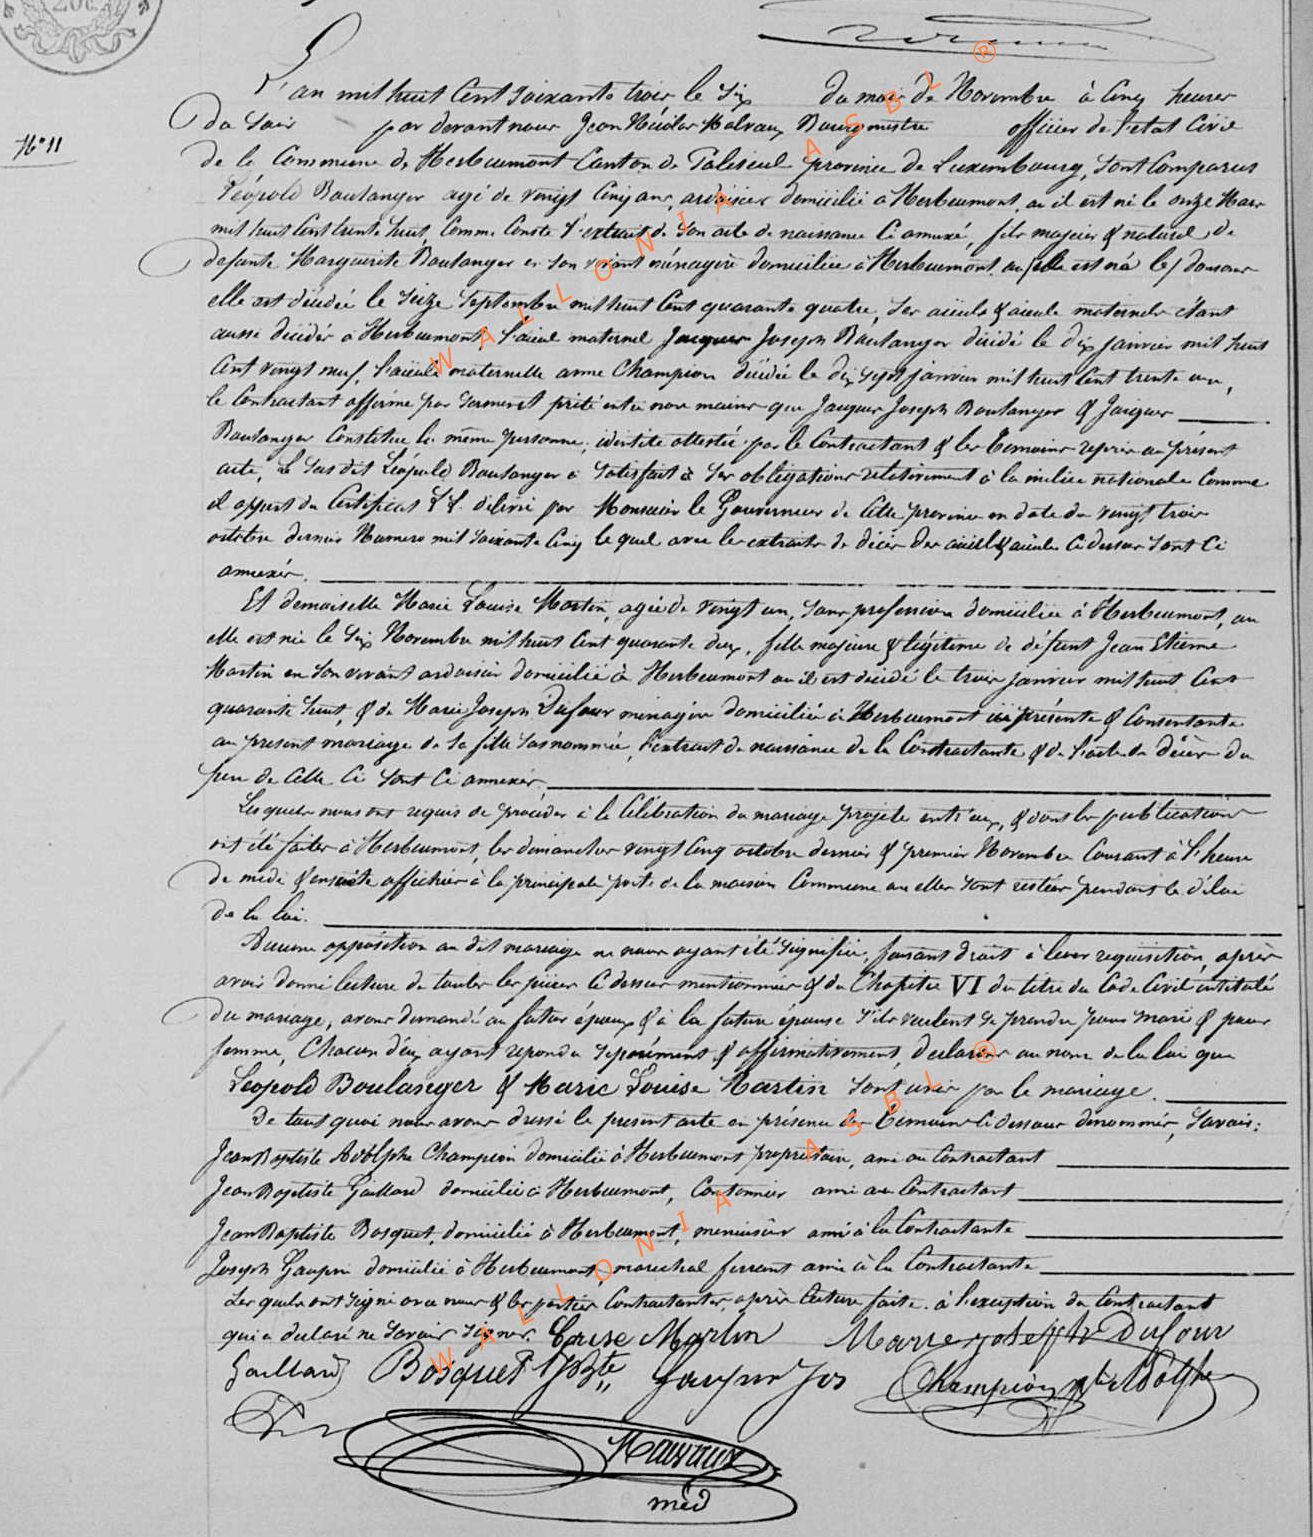 L'an mil huit Cent soixante trois le six du mois de Novembre à Cinq heures
N° 11
du soir par devant nous Jean Nicolas Malvaux Bourgmestre officier de l'etat Civil
de la Commune de Herbeumont Canton de Paliseul province de Luxembourg, sont Comparus
Léopold Boulanger agé de vingt Cinq ans, ardoisier domicilié à Herbeumont, ou il est né le onze Mars
mil huit Cent trente huit, Comme Conste l'extrait de son acte de naissance Ci annexé, fils majeur & naturel de
defunte Marguerite Boulanger en son vivant ménagère domiciliée à Herbeumont, ou elle est
elle est décédée le seize Septembre mil huit Cent quarante quatre, ses aïeuls & aïeule maternels étant
aussi décédés à Herbeumont, l'aïeul maternel Jacques Joseph Boulanger décédé le dix janvier mil huit
Cent vingt neuf, l'aïeule maternelle anne Champion décédée le dix sept janvier mil huit Cent trente un,
le Contractant affirme par serment prêté entre nos mains que Jacques Joseph Boulanger & Jacques
Boulanger Constitue la même personne, identité attestée par le Contractant & les temoins repris au présent
acte, Le susdit Léopold Boulanger a satisfait à ses obligations relativement à la milice nationale Comme
il appert du Certificat LL. délivré par Monsieur le Gouverneur de Cette province en date du vingt trois
octobre dernier Numero mil soixante Cinq lequel avec les extraits de décès des aïeul & aïeule Ci dessus sont Ci
annexés.
Et demoiselle Marie Louise Martin, agée de vingt un, sans profession domiciliée à Herbeumont, ou
elle est née le six Novembre mil huit Cent quarante deux, fille majeure & légitime de défunt Jean Etienne
Martin en son vivant ardoisier domicilié à Herbeumont ou il est décédé le trois janvier mil huit Cent
quarante huit, & de Marie Joseph Dufour ménagère domiciliée à Herbeumont ici présente & Consentante
au présent mariage de sa fille susnommée, l'extrait de naissance de la Contractante & de l'acte de décès du
père de Celle Ci sont Ci annexés.
Lesquels nous ont requis de procéder à la Célébration du mariage projeté entr'eux, & dont les publications
ont été faites à Herbeumont, les dimanches vingt Cinq octobre dernier & premier Novembre Courant à l'heure
de midi & ensuite affichées à la principale porte de la maison Commune ou elles sont restées pendant le délai
de la loi.
Aucune opposition au dit mariage ne nous ayant été signifiée, faisant droit à leur requisition, après
avoir donné lecture de toutes les pièces Ci dessus mentionnées & du Chapitre VI du titre du Code Civil intitulé
du mariage, avons demandé au futur époux & à la future épouse s'ils veulent se prendre pour mari & pour
femme, Chacun d'eux ayant repondu séparément & affirmativement, declarons au nom de la loi que
Léopold Boulanger & Marie Louise Martin sont unis par le mariage.
De tout quoi nous avons dressé le présent acte en présence des temoins Ci dessous dénommés, Savoir:
Jean Baptiste Adolphe Champion domicilié à Herbeumont propriétaire, ami au Contractant
Jean Baptiste Gaillard domicilié à Herbeumont, Cantonnier ami au Contractant
Jean Baptiste Bosquet, domicilié à Herbeumont, menuisier ami à la Contractante
Joseph Gaupin domicilié à Herbeumont, marechal ferrant ami à la Contractante
Lesquels ont signé avec nous & les parties Contractantes, après lecture faite. à l'exception du Contractant
qui a declaré ne savoir signer. Louise Martin Marie joseph Dufour
Gaillard Bosquet Jbte Gaupin Jos Champion Adolphe
Malvaux
WALLONIA ASBL ®
WALLONIA ASBL ®